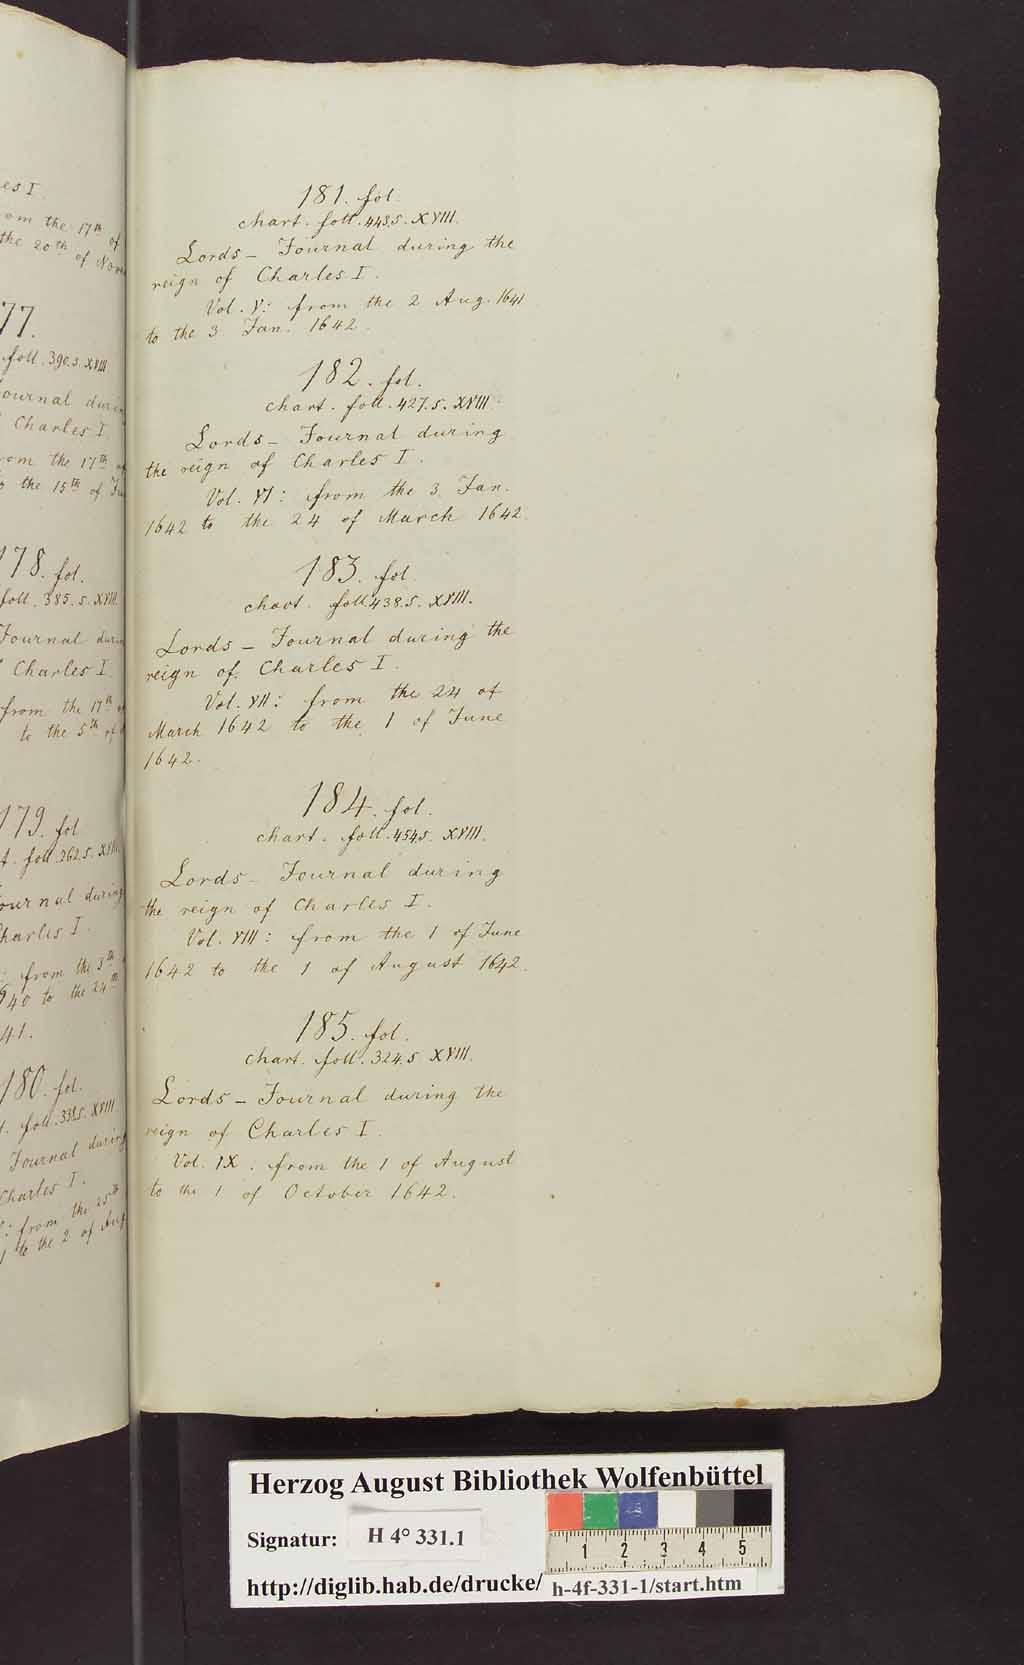 es I.
om the 17th of
the 20th of Nove
77.
foll. 390. s. XVIII
ournal durin
Charles I.
rom the 17th of
the 15th of Ju
178. fol.
foll. 385. s. XVIII
Journal durin
Charles I.
from the 17th
to the 5th of
179. fol
t. foll. 262. s. XVIII.
ournal during
Charles I.
: from the 3th
40 to the 24th
41.
180. fol.
t. foll. 338. s. XVIII
Journal during
Charles I.
: from the 25th
to the 2 of Aug.
181. fol.
chart. foll. 448. s. XVIII.
Lords - Journal during the
reign of Charles I.
Vol. V: from the 2 Aug. 1641
to the 3 Jan. 1642.
182. fol.
chart. foll. 427. s. XVIII.
Lords - Journal during
the reign of Charles I.
Vol. VI: from the 3 Jan.
1642 to the 24 of March 1642.
183. fol.
chart. foll. 438. s. XVIII.
Lords - Journal during the
reign of Charles I.
Vol. VII: from the 24 of
March 1642 to the 1 of June
1642.
184. fol.
chart. foll. 454. s. XVIII.
Lords - Journal during
the reign of Charles I.
Vol. VIII: from the 1 of June
1642 to the 1 of August 1642.
185. fol.
chart. foll. 324. s XVIII.
Lords - Journal during the
reign of Charles I.
Vol. IX. from the 1 of August
to the 1 of October 1642.
Herzog August Bibliothek Wolfenbüttel
Signatur: H 4° 331.1
1 2 3 4 5
http://diglib.hab.de/drucke/ h-4f-331-1/start.htm